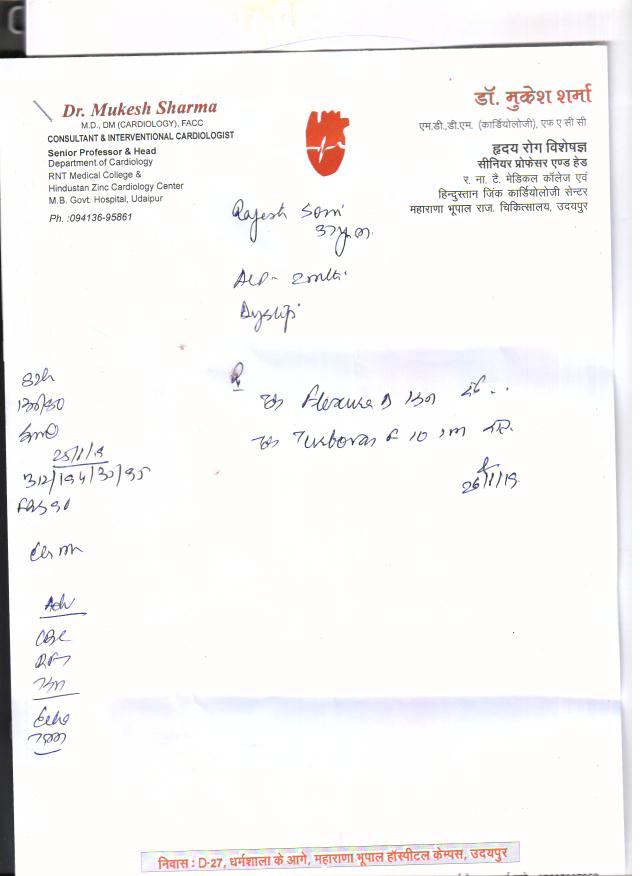 Dr. Mukesh Sharma
M.D., DM (CARDIOLOGY), FACC
CONSULTANT & INTERVENTIONAL CARDIOLOGIST
Senior Professor & Head
Department of Cardiology
RNT Medical College &
Hindustan Zinc Cardiology Center
M.B. Govt. Hospital, Udaipur
Ph. :094136-95861
डॉ. मुकेश शर्मा
एम.डी.,डी.एम. (कार्डियोलोजी), एफ ए सी सी
हृदय रोग विशेषज्ञ
सीनियर प्रोफेसर एण्ड हेड
र. ना. टै. मेडिकल कॉलेज एवं
हिन्दुस्तान जिंक कार्डियोलोजी सेन्टर
महाराणा भूपाल राज. चिकित्सालय, उदयपुर
Rajesh Soni
Dyslip
130/80
25/1/19
312/194/30/95
FBS 90
26/1/19
Adv
CBC
RFT
Echo
TMT
निवास : D-27, धर्मशाला के आगे, महाराणा भूपाल हॉस्पीटल केम्पस, उदयपुर